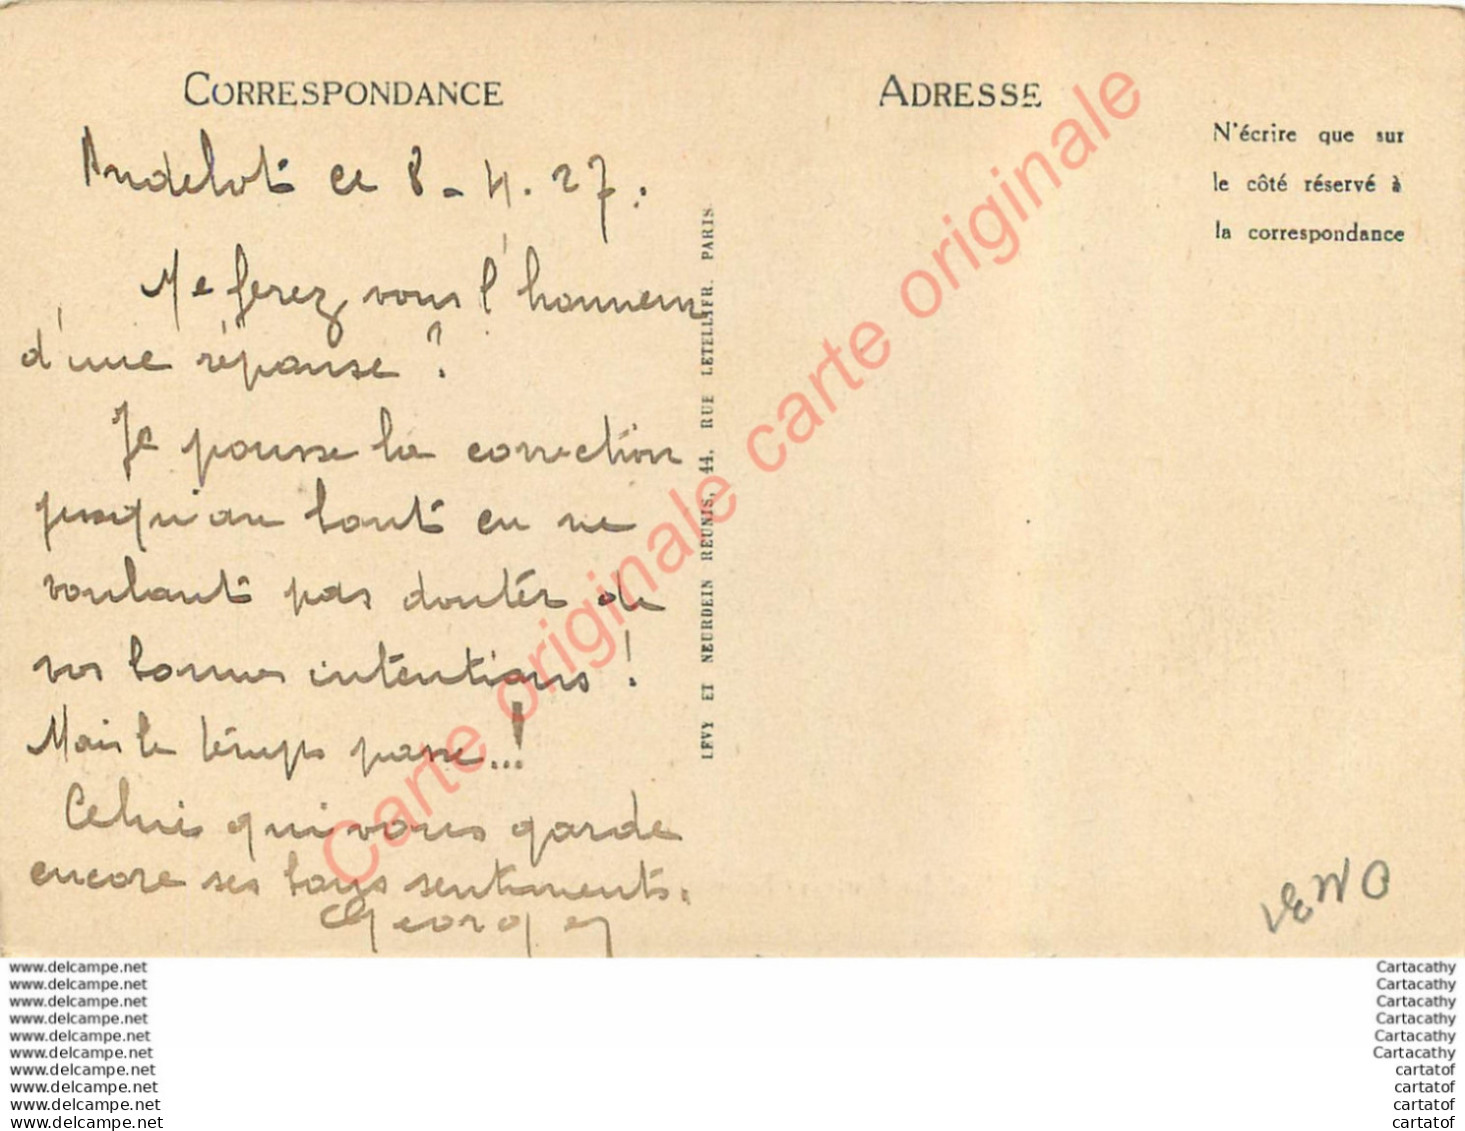 CORRESPONDANCE
Andelot ce 8-4.27.
Me ferez vous l'honneur
d'une réponse ?
Je pousse la correction
jusqu'au bout en ne
voulant pas douter de
vos bonnes intentions !
Mais le temps passe...!
Celui qui vous garde
encore ses bons sentiments.
Georges
LEVY ET NEURDEIN REUNIS, 44, RUE LETELLIER, PARIS
ADRESSE
N'écrire que sur
le côté réservé à
la correspondance
Carte originale carte originale
www.delcampe.net
www.delcampe.net
www.delcampe.net
www.delcampe.net
www.delcampe.net
www.delcampe.net
www.delcampe.net
www.delcampe.net
www.delcampe.net
www.delcampe.net
Cartacathy
Cartacathy
Cartacathy
Cartacathy
Cartacathy
Cartacathy
cartatof
cartatof
cartatof
cartatof